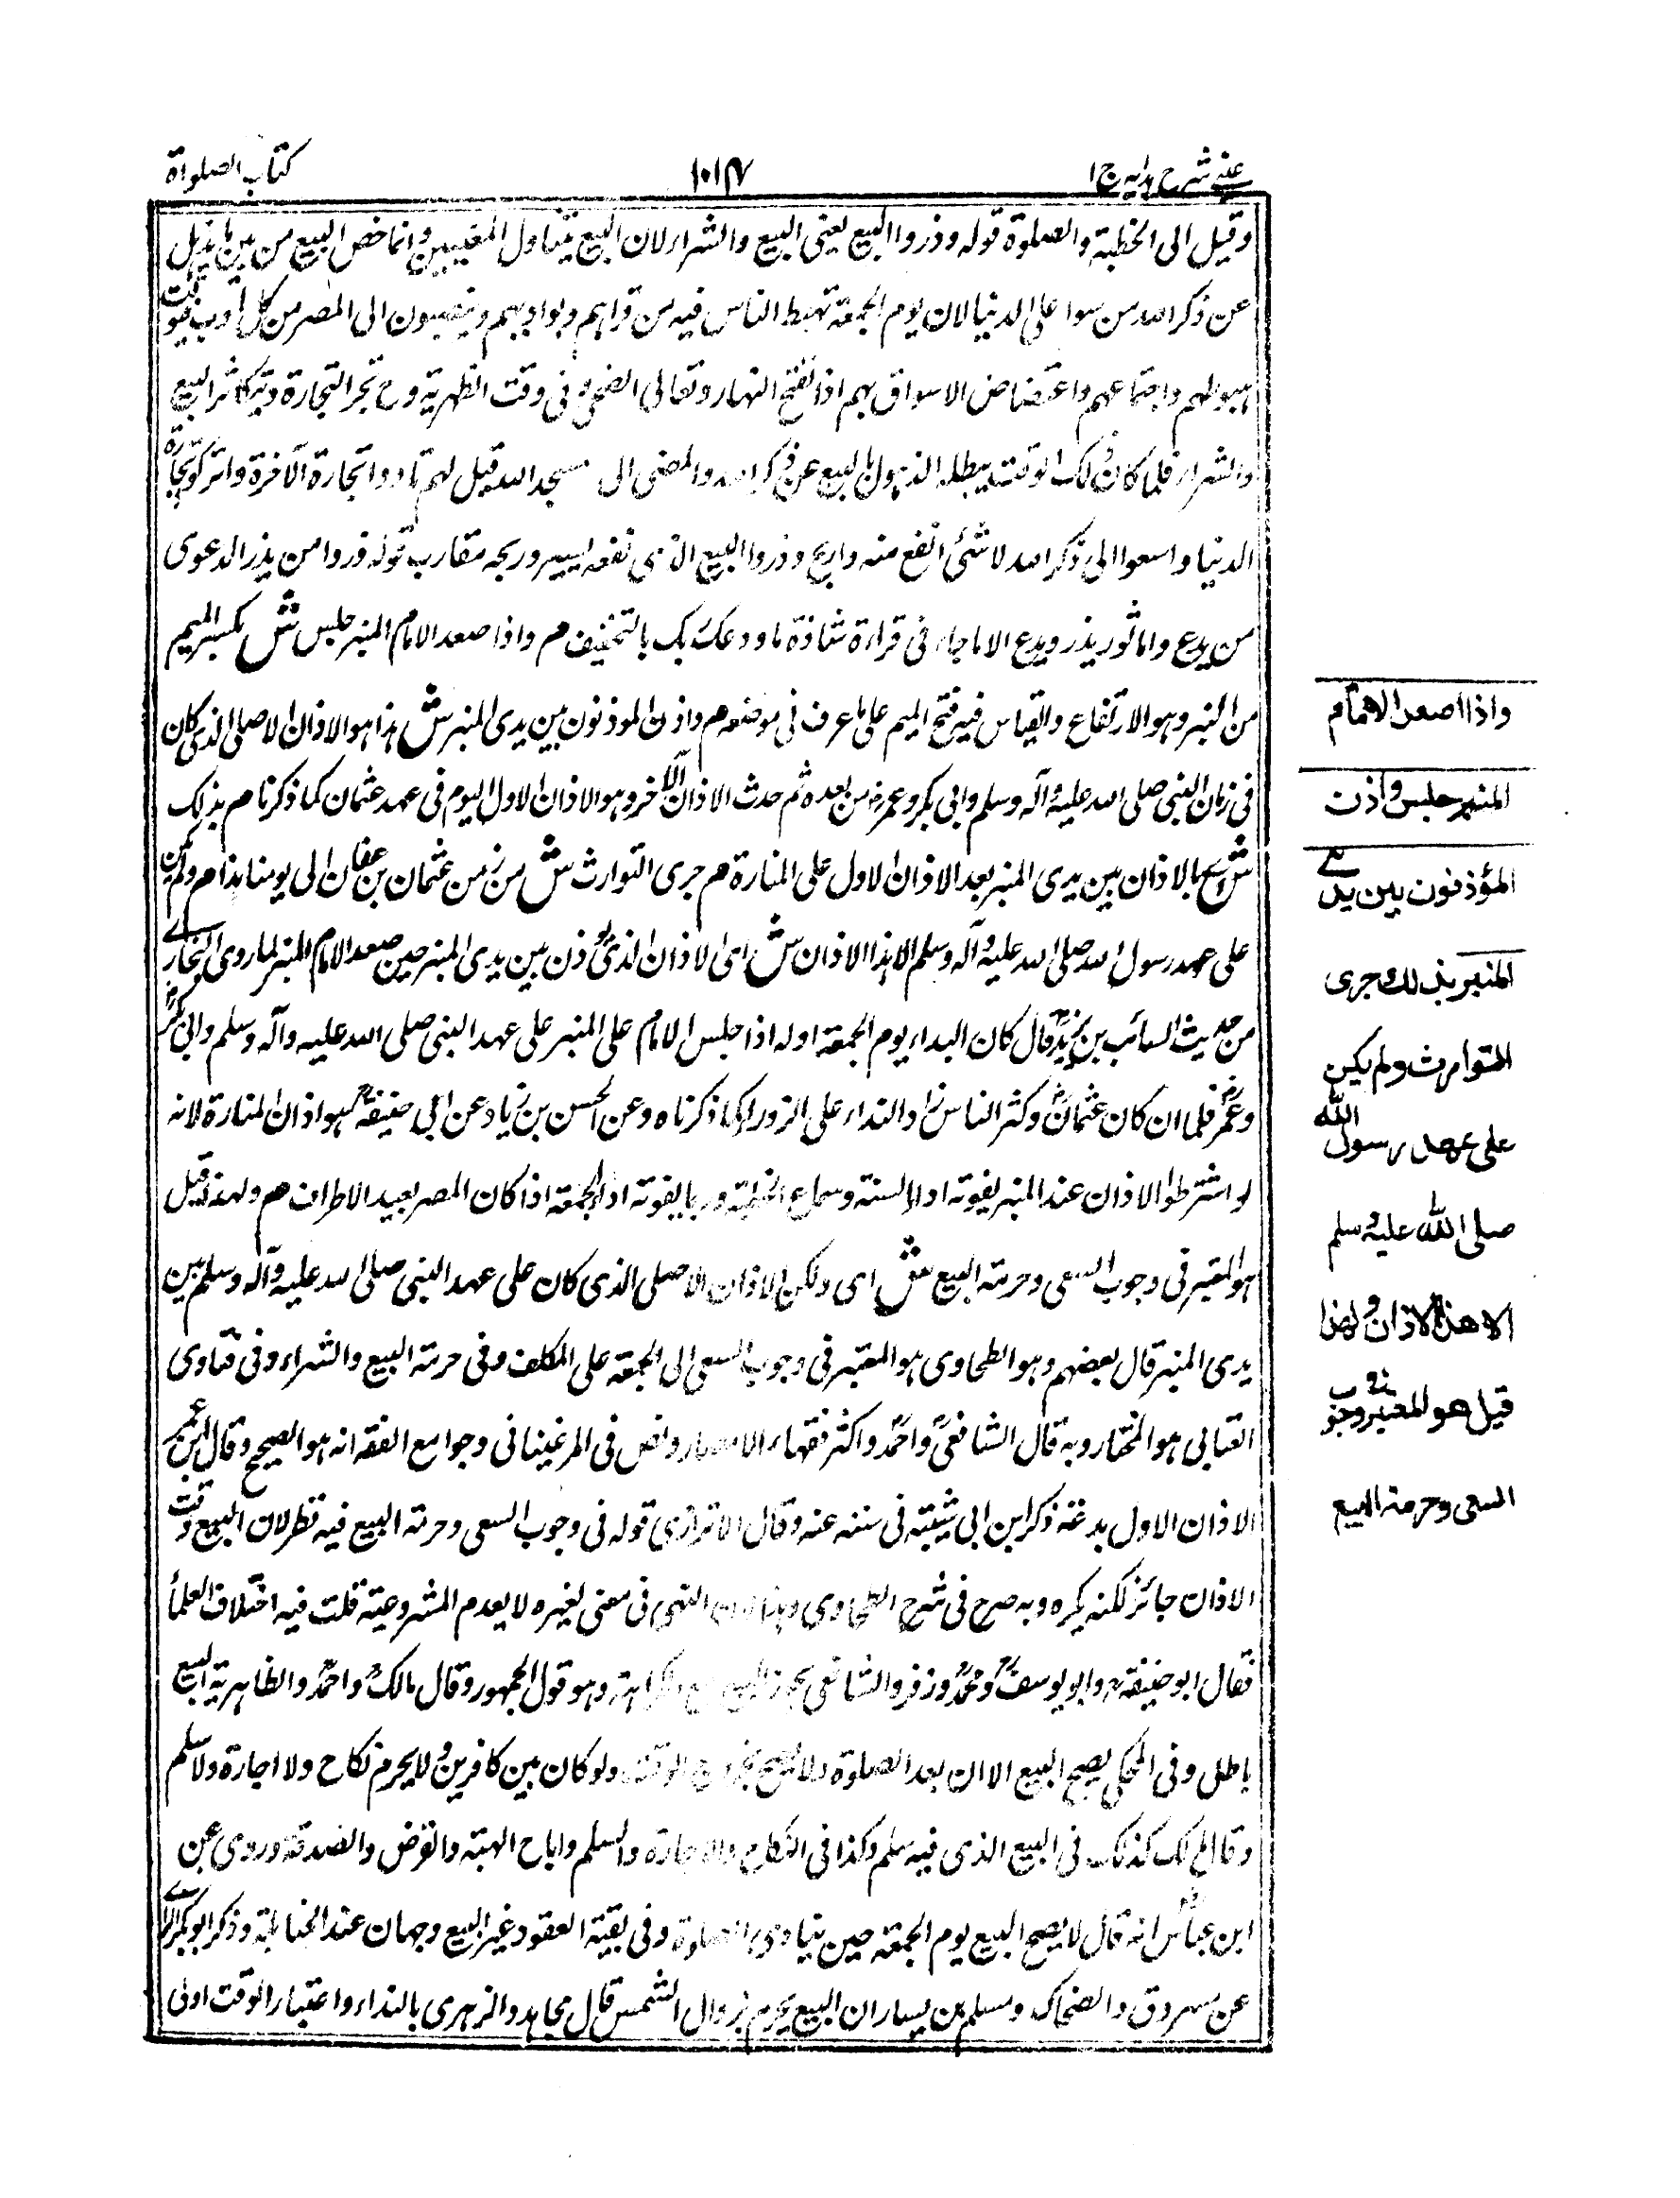 عینے شرح ہدایہ ج ۱
۱۰۱۷
کتاب الصلواة
وقيل الى الخطبة والصلوة قوله وذروا البيع يعنى البيع والشراء لان البيع يتناول المعنيين وانما خص البيع من بين ما يذهل
عن ذكر الله من سواعى الدنيا لان يوم الجمعة تهبط الناس فيه من قراهم وبواديهم وينصبون الى المصر من كل اوب فوقت
هبوطهم واجتماعهم واغتضاض الاسواق بهم اذا انفتح النهار وتعالى الضحى وفى وقت الظهرية وح تجر التجارة ويتكاثر البيع
والشراء فلما كان ذلك الوقت الذهول بالبيع عن ذكر الله والمضى الى مسجد الله قيل لهم بادروا تجارة الآخرة واتركوا تجارة
الدنيا واسعوا الى ذكر الله لا شئ انفع منه واربح وذروا البيع الذى نفعه يسير وربحه مقارب قوله ذروا من يذر الدعوى
من يدع واماثور يذر ويدع الا ما جاء فى قراءة شاذة ما ودعك ربك بالتخفيف م واذا صعد الامام المنبر جلس ش بكسر الميم
من النبر وهو الارتفاع والقياس فيه فتح الميم على ما عرف فى موضعه م واذن الموذنون بين يدى المنبر ش هذا هو الاذان الاصلى الذى كان
فى زمان النبى صلى الله عليه وآله وسلم وابى بكر وعمر رض من بعده ثم حدث الاذان الآخر وهو الاذان الاول اليوم فى عهد عثمان كما ذكرنا م بذلك
ش اى بالاذان بين يدى المنبر بعد الاذان الاول على المنارة م جرى التوارث ش من زمن عثمان بن عفان الى يومنا هذا م ولم يكن
على عهد رسول الله صلى الله عليه وآله وسلم الا هذا الاذان ش اى الاذان الذى يوذن بين يدى المنبر حين صعد الامام المنبر لما روى البخارے
من حديث السائب بن يزيد قال كان النداء يوم الجمعة اوله اذا جلس الامام على المنبر على عهد النبى صلى الله عليه وآله وسلم وابى بكر
وعمر فلما ان كان عثمان وكثر الناس زاد النداء على الزوراء كما ذكرناه وعن الحسن بن زياد عن ابى حنيفة هو اذان المنارة لانه
لو اشترطوا الاذان عند المنبر يفوته اداء السنة وسماع الخطبة وربما يفوته اداء الجمعة اذا كان المصر بعيد الاطراف م ولهذا قيل
هو المعتبر فى وجوب السعى وحرمة البيع ش اى ولكن الاذان الاصلى الذى كان على عهد النبى صلى الله عليه وآله وسلم بين
يدى المنبر قال بعضهم وهو الطحاوى هو المعتبر فى وجوب السعى الى الجمعة على المكلف وفى حرمة البيع والشراء وفى فتاوى
العتابى هو المختار وبه قال الشافعى واحمد واكثر فقهاء الامصار ونص فى المرغينانى وجوامع الفقه انه هو الصحيح وقال ابن عمر
الاذان الاول بدعة ذكر ابن ابى شيبة فى سننه عنه وقال الاترازى قوله فى وجوب السعى وحرمة البيع فيه نظر لان البيع وقت
الاذان جائز لكنه يكره وبه صرح فى شرح الطحاوى وهذا لان النهى فى معنى لغيره لا يعدم المشروعية قلت فيه اختلاف العلماء
فقال ابو حنيفة وابو يوسف ومحمد وزفر والشافعى يجوز البيع مع الكراهة وهو قول الجمهور وقال مالك واحمد والظاهرية البيع
باطل وفى المحلى يفسخ البيع الا ان بعد الصلوة ولا يصح بخروج الوقت ولو كان بين كافرين ولا يحرم نكاح ولا اجارة ولا سلم
وقال مالك كذلك فى البيع الذى فيه سلم وكذا فى النكاح والاجارة والسلم واباح الهبة والقرض والصدقة وروى عن
ابن عباس انه قال لا يصح البيع يوم الجمعة حين ينادى بالصلوة وفى بقية العقود غير البيع وجهان عند الحنابلة وذكر ابو بكر الرازے
عن مسروق والضحاك ومسلم بن يسار ان البيع يحرم بزوال الشمس قال مجاهد والزهرى بالنداء واعتبار الوقت اولى
واذا صعد الامام
المنبر جلس واذن
المؤذنون بين يدے
المنبر بذلك جرى
التوارث ولم يكن
على عهد رسول الله
صلى الله عليه وسلم
الا هذا الاذان ولهذا
قيل هو المعتبر فى وجوب
السعى وحرمة البيع